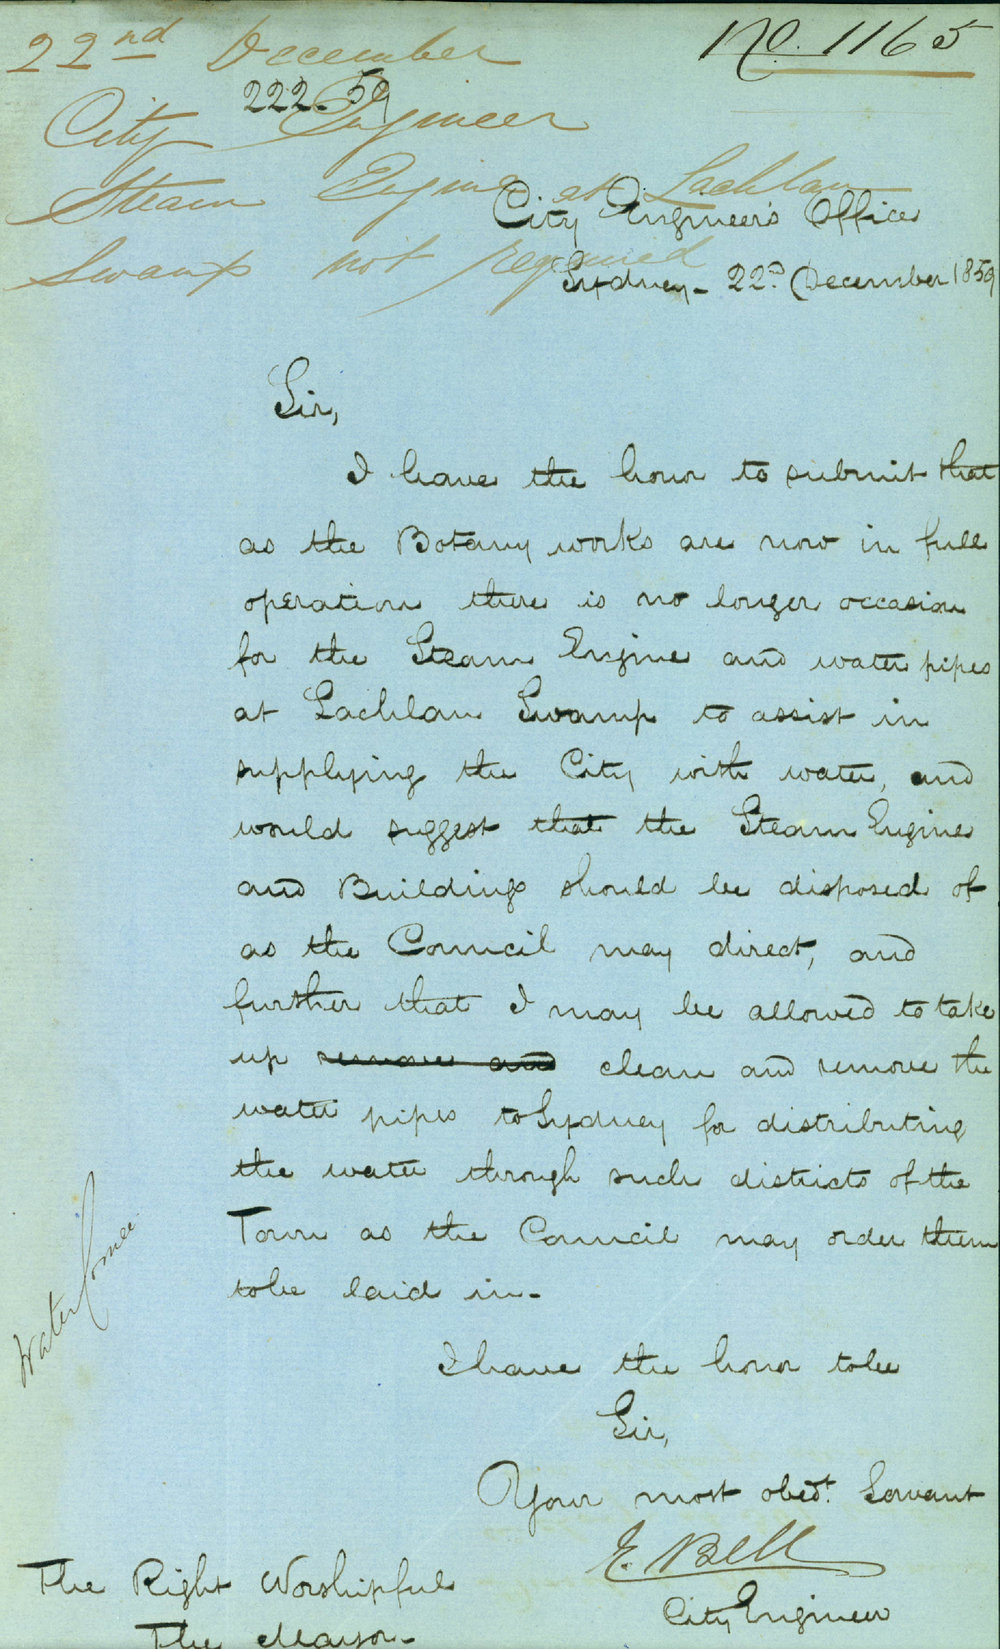 22nd December
No. 1165
222-59
City Engineer
Steam Engine at Lachlan
Swamp not required
City Engineer's Office
Sydney - 22nd December 1859
Sir,
I have the honor to submit that
as the Botany works are now in full
operation there is no longer occasion
for the Steam Engine and water pipes
at Lachlan Swamp to assist in
supplying the City with water, and
would suggest that the Steam Engine
and Buildings should be disposed of
as the Council may direct, and
further that I may be allowed to take
up remove and clean and remove the
water pipes to Sydney for distributing
the water through such districts of the
Town as the Council may order them
to be laid in -
Water Comee
I have the honor to be
Sir,
Your most obedt. Servant
E. Bell
City Engineer
The Right Worshipful
The Mayor -